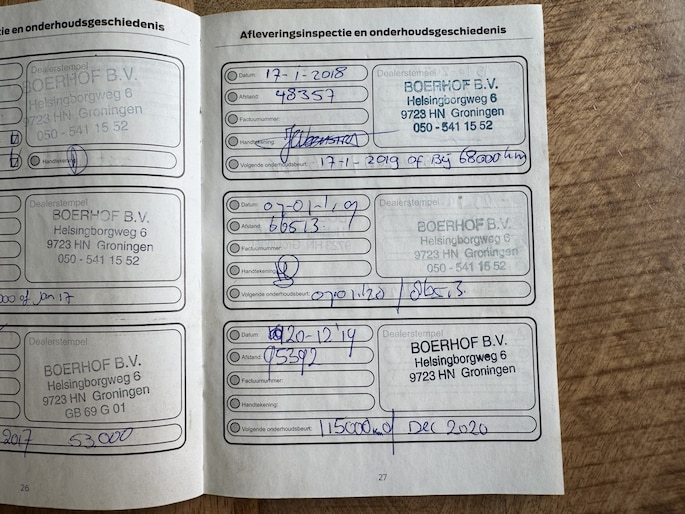 tie en onderhoudsgeschiedenis
Dealerstempel
BOERHOF B.V.
Helsingborgweg 6
9723 HN Groningen
050 - 541 15 52
Handtekening:
Dealerstempel
BOERHOF B.V.
Helsingborgweg 6
9723 HN Groningen
050 - 541 15 52
of Jan 17
Dealerstempel
BOERHOF B.V.
Helsingborgweg 6
9723 HN Groningen
GB 69 G 01
2017 53.000
26
Afleveringsinspectie en onderhoudsgeschiedenis
Datum: 17-1-2018
Afstand: 48357
Factuurnummer:
Handtekening:
Volgende onderhoudsbeurt: 17-1-2019 of Bij 68000 km
Dealerstempel
BOERHOF B.V.
Helsingborgweg 6
9723 HN Groningen
050 - 541 15 52
Datum:
Afstand: 66513
Factuurnummer:
Handtekening:
Volgende onderhoudsbeurt: 07.01.'20 / 86513
Dealerstempel
BOERHOF B.V.
Helsingborgweg 6
9723 HN Groningen
050 - 541 15 52
Datum: 20-12'19
Afstand: 95392
Factuurnummer:
Handtekening:
Volgende onderhoudsbeurt: 115000 km / Dec 2020
Dealerstempel
BOERHOF B.V.
Helsingborgweg 6
9723 HN Groningen
27